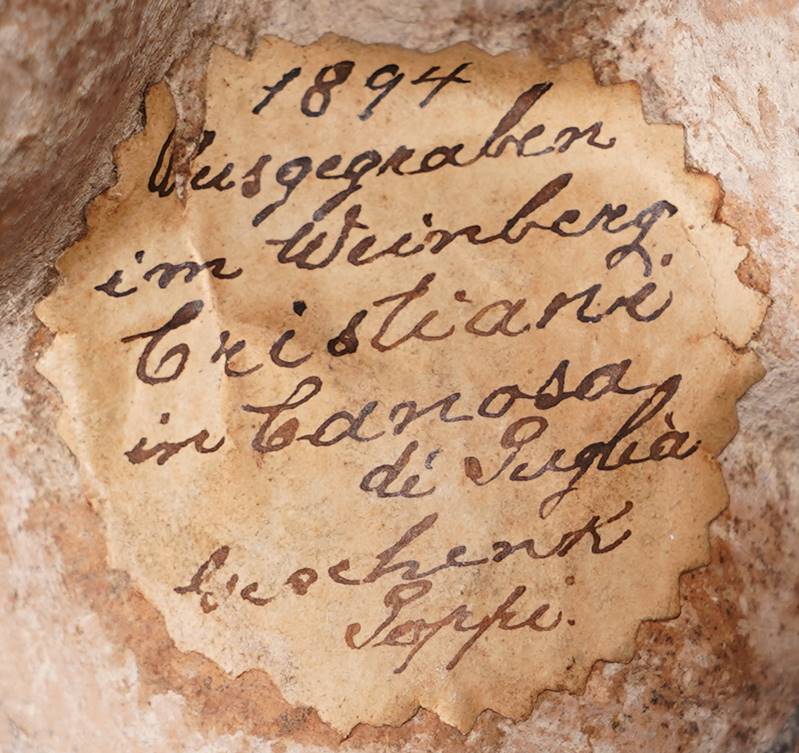 1894
Ausgegraben
im Weinberg
Cristiani
in Canosa
di Puglia
Geschenk
Poppi.